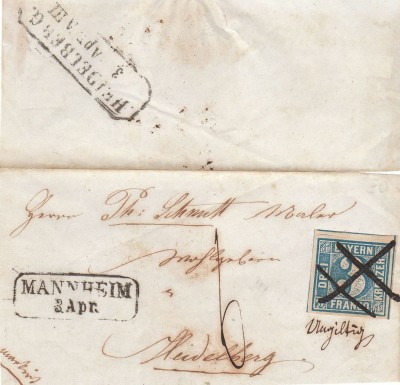 HEIDELBERG.
3 Apr. A III
Herrn Th: Schmitt Maler
Wohlgeboren
"
Heidelberg
6
MANNHEIM
3 Apr.
BAYERN
DREI
KREUZER
FRANCO
Ungiltig